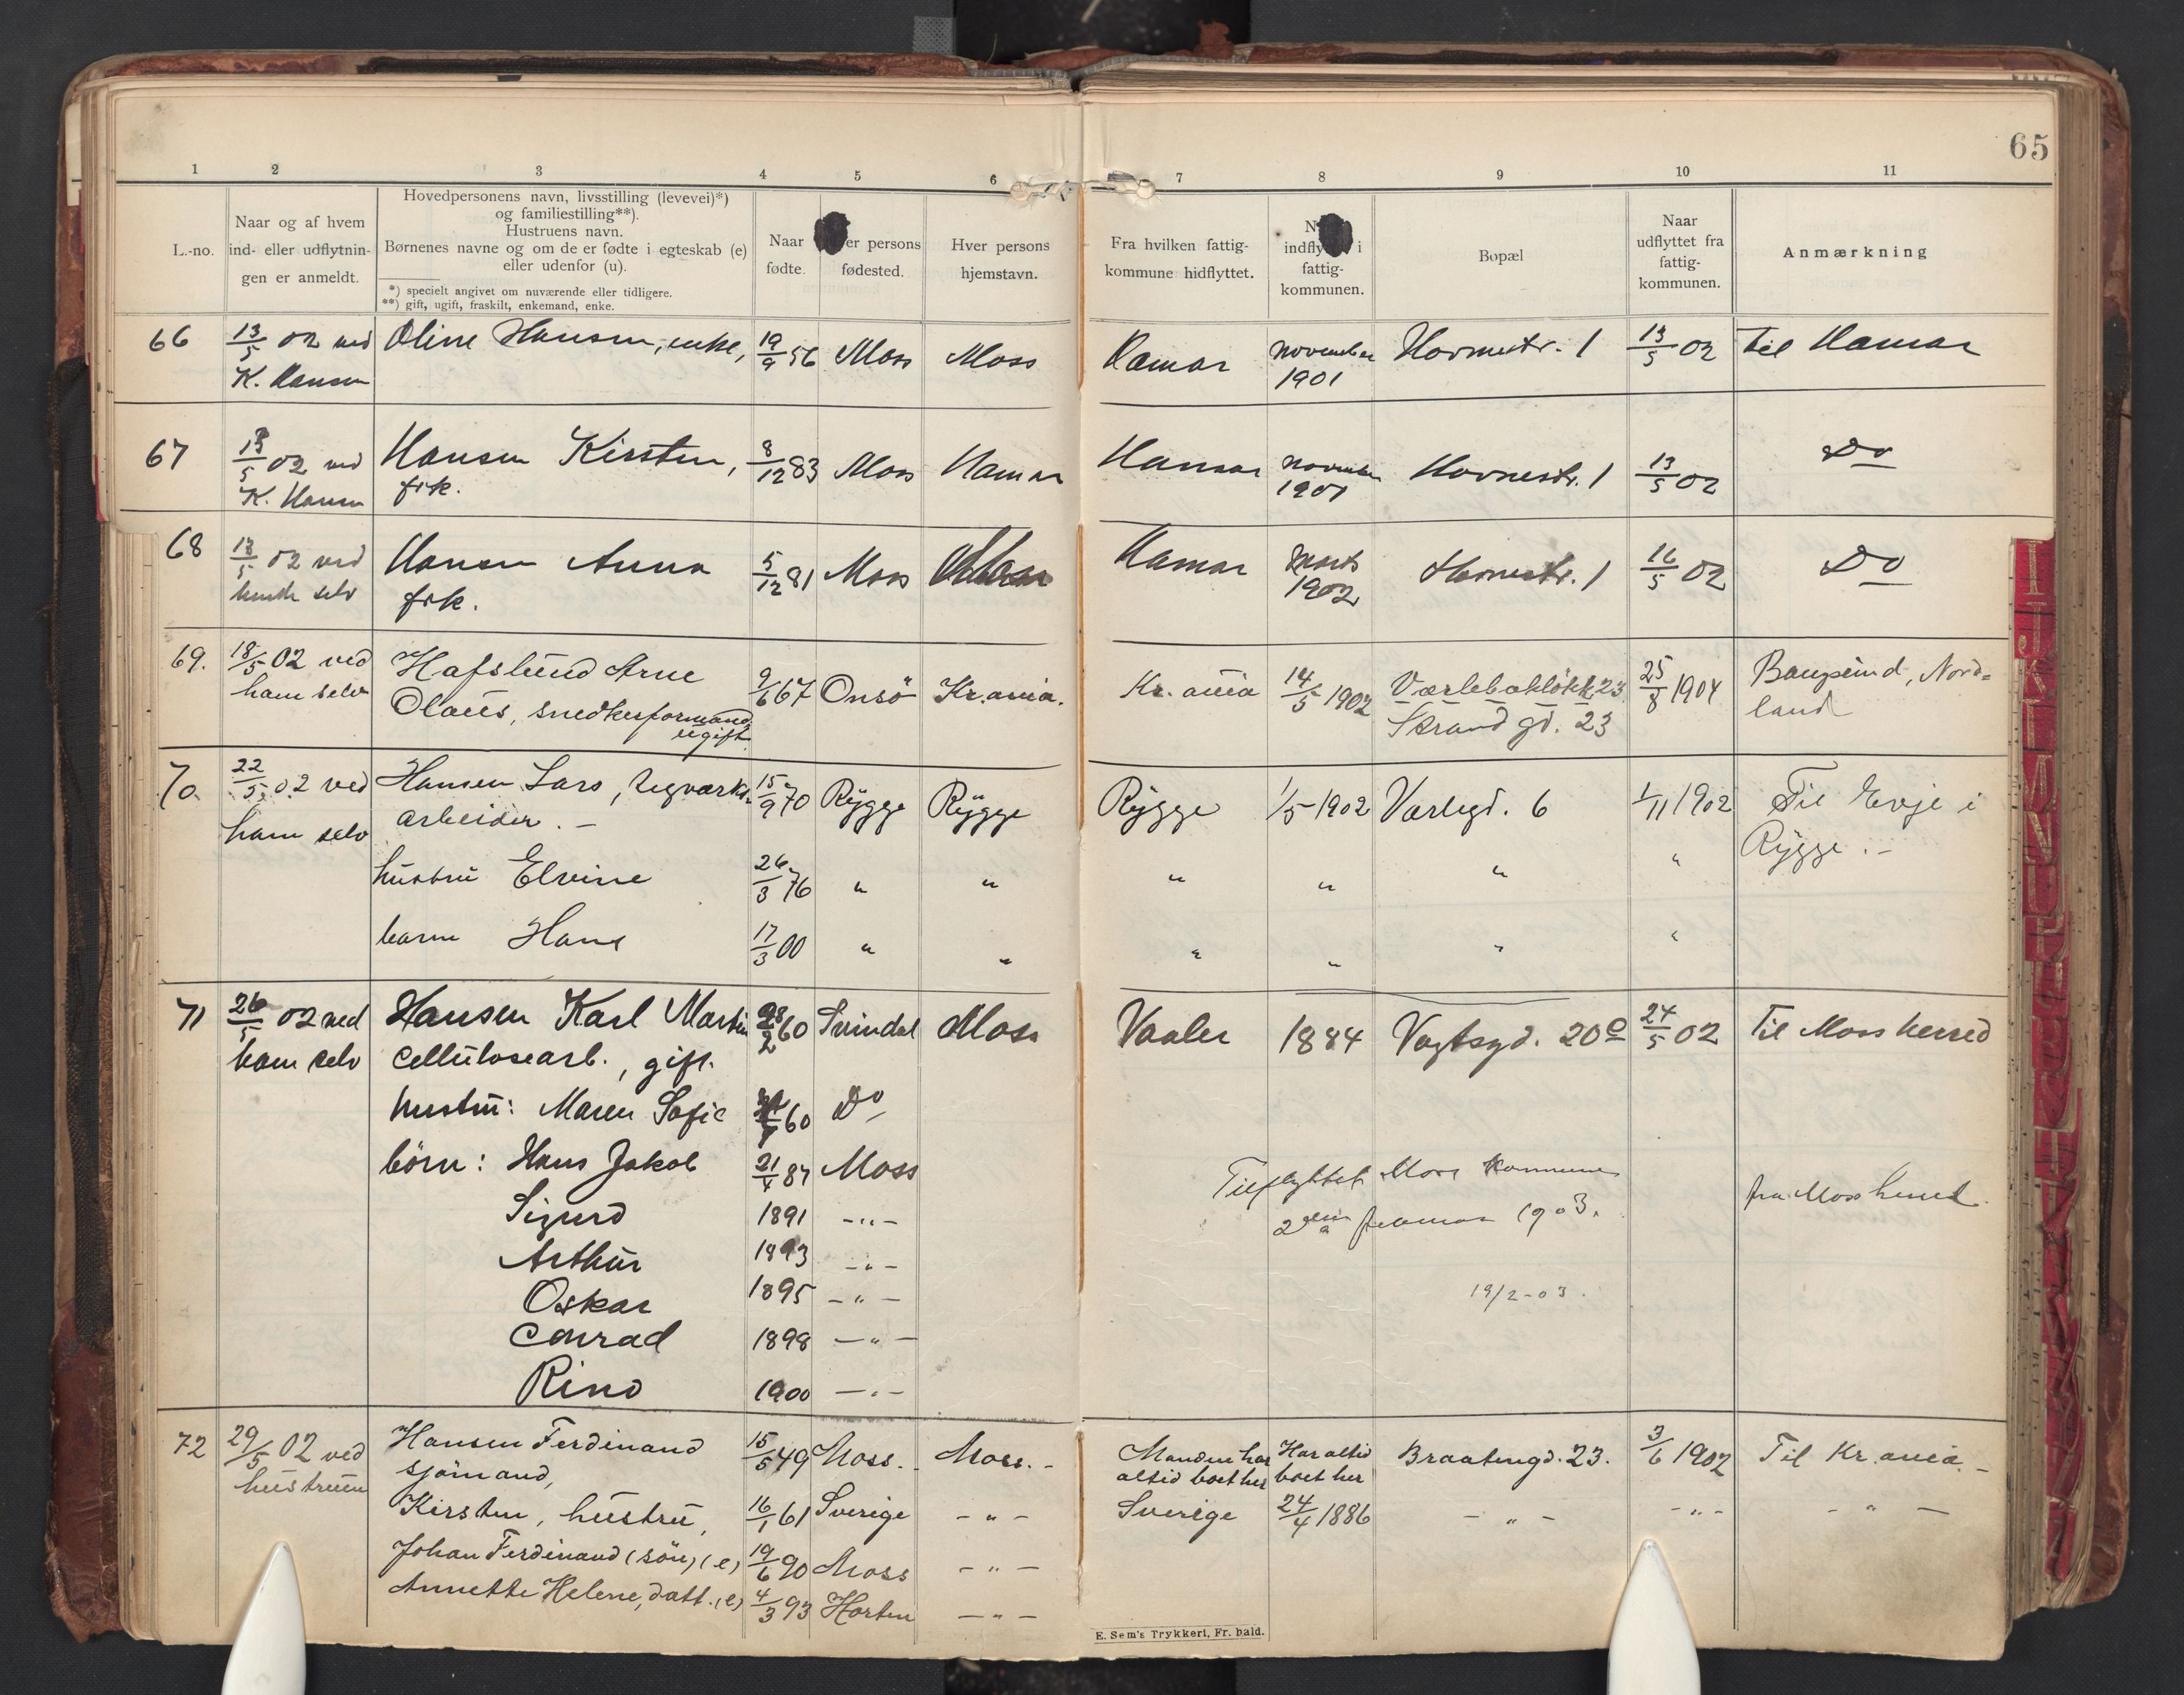 65
1 2 3 4 5 6 7 8 9 10 11
L.-no.
Naar og af hvem
ind- eller udflytnin-
gen er anmeldt.
Hovedpersonens navn, livsstilling (levevei)*)
og familiestilling**).
Hustruens navn.
Børnenes navne og om de er fødte i egteskab (e)
eller udenfor (u).
*) specielt angivet om nuværende eller tidligere.
**) gift, ugift, fraskilt, enkemand, enke.
Naar
fødte.
er persons
fødested.
Hver persons
hjemstavn.
Fra hvilken fattig-
kommune hidflyttet.
N
indfly i
fattig-
kommunen.
Bopæl
Naar
udflyttet fra
fattig-
kommunen.
Anmærkning
66 13/5 02 ved Oline Hansen, enke, 19/9 56 Moss Moss Hamar november Hovnestr. 1 13/5 02 Til Hamar
K. Hansen 1901
67 13/5 02 ved Hansen Kirsten, 8/12 83 Moss Hamar Hamar november Hovnestr. 1 13/5 02 Do
K. Hansen frk. 1901
68 13/5 02 ved Hansen Anna 5/12 81 Moss Hamar Marts Hovnestr. 1 16/5 02 Do
hende selv frk. 1902
69. 18/5 02 ved Hafslund Arne 9/6 67 Onsö Kr.ania. Kr. ania 14/5 1902 Værlebakløkk 23 25/8 1904 Nord-
ham selv Olaus, snedkerformand, Strandgd. 23 land
ugift.
70. 22/5 02 ved Hansen Lars, tegværks- 15/9 70 Rygge Rygge Rygge 1/5 1902 Varlegd. 6 1/11 1902 Til Evje i
ham selv arbeider. - Rygge. -
hustru Elvine 26/3 76 " " " " " "
barn Hans 17/3 00 " " " " " "
71 26/5 02 ved Hansen Karl Martin 28/2 60 Svindal Moss Vaaler 1884 Vogtsgd. 20e 24/5 02 Til Moss herred
ham selv Cellulosearb., gift.
hustru: Maren Sofie 60 Do
börn: Hans Jakob 21/4 87 Moss Tilflyttet Moss kommune fra Moss herred.
Sigurd 1891 -"- 2den februar 1903.
Arthur 1893 -"-
Oskar 1895 -"- 19/2-03.
Conrad 1898 -"-
Rino 1900 -"-
72 29/5 02 ved Hansen Ferdinand 15/5 49 Moss. Moss. - Manden har Har altid Braatengd. 23. 3/6 1902 Til Kr.ania. -
hustruen sjömand, altid boet her boet her
Kirsten, hustru, 16/1 61 Sverige -"- Sverige 24/4 1886 -"- -"- -"-
Johan Ferdinand (sön) (e) 19/6 90 Moss -"-
Annette Helene, datt. (e) 4/3 93 Horten -"-
E. Sem's Trykkeri, Fr. hald.